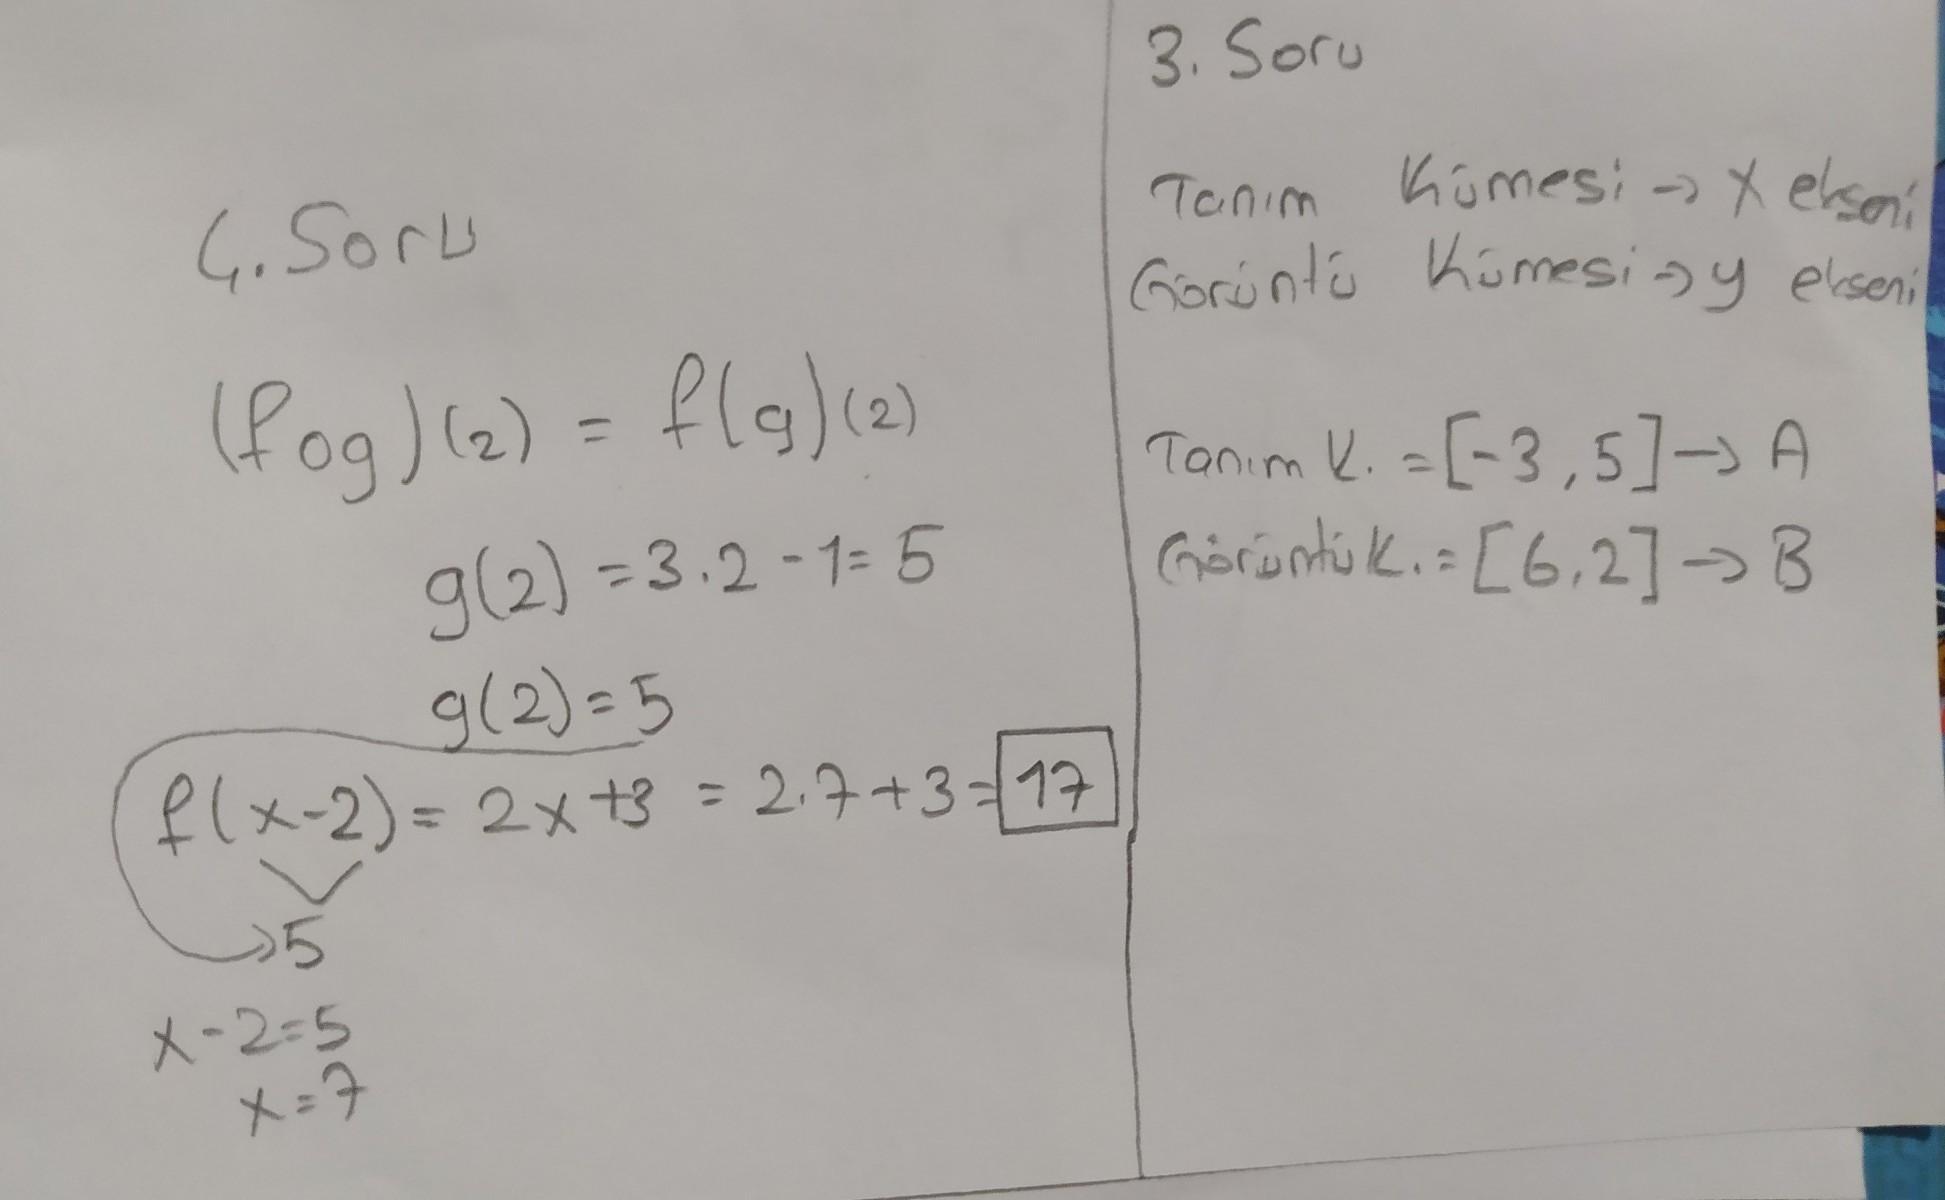 4. Soru
(fog)(2) = f(g)(2)
g(2) = 3.2 - 1 = 5
g(2) = 5
f(x-2) = 2x+3 = 2.7+3 = 17
→5
x-2=5
x=7
3. Soru
Tanım Kümesi → x ekseni
Görüntü Kümesi → y ekseni
Tanım K. = [-3,5] → A
Görüntü K. = [6,2] → B